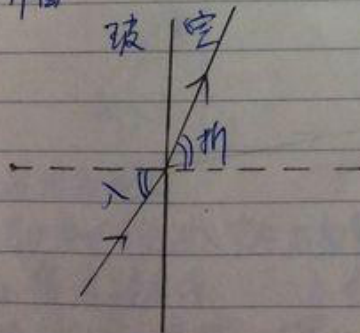 玻 空
折
入